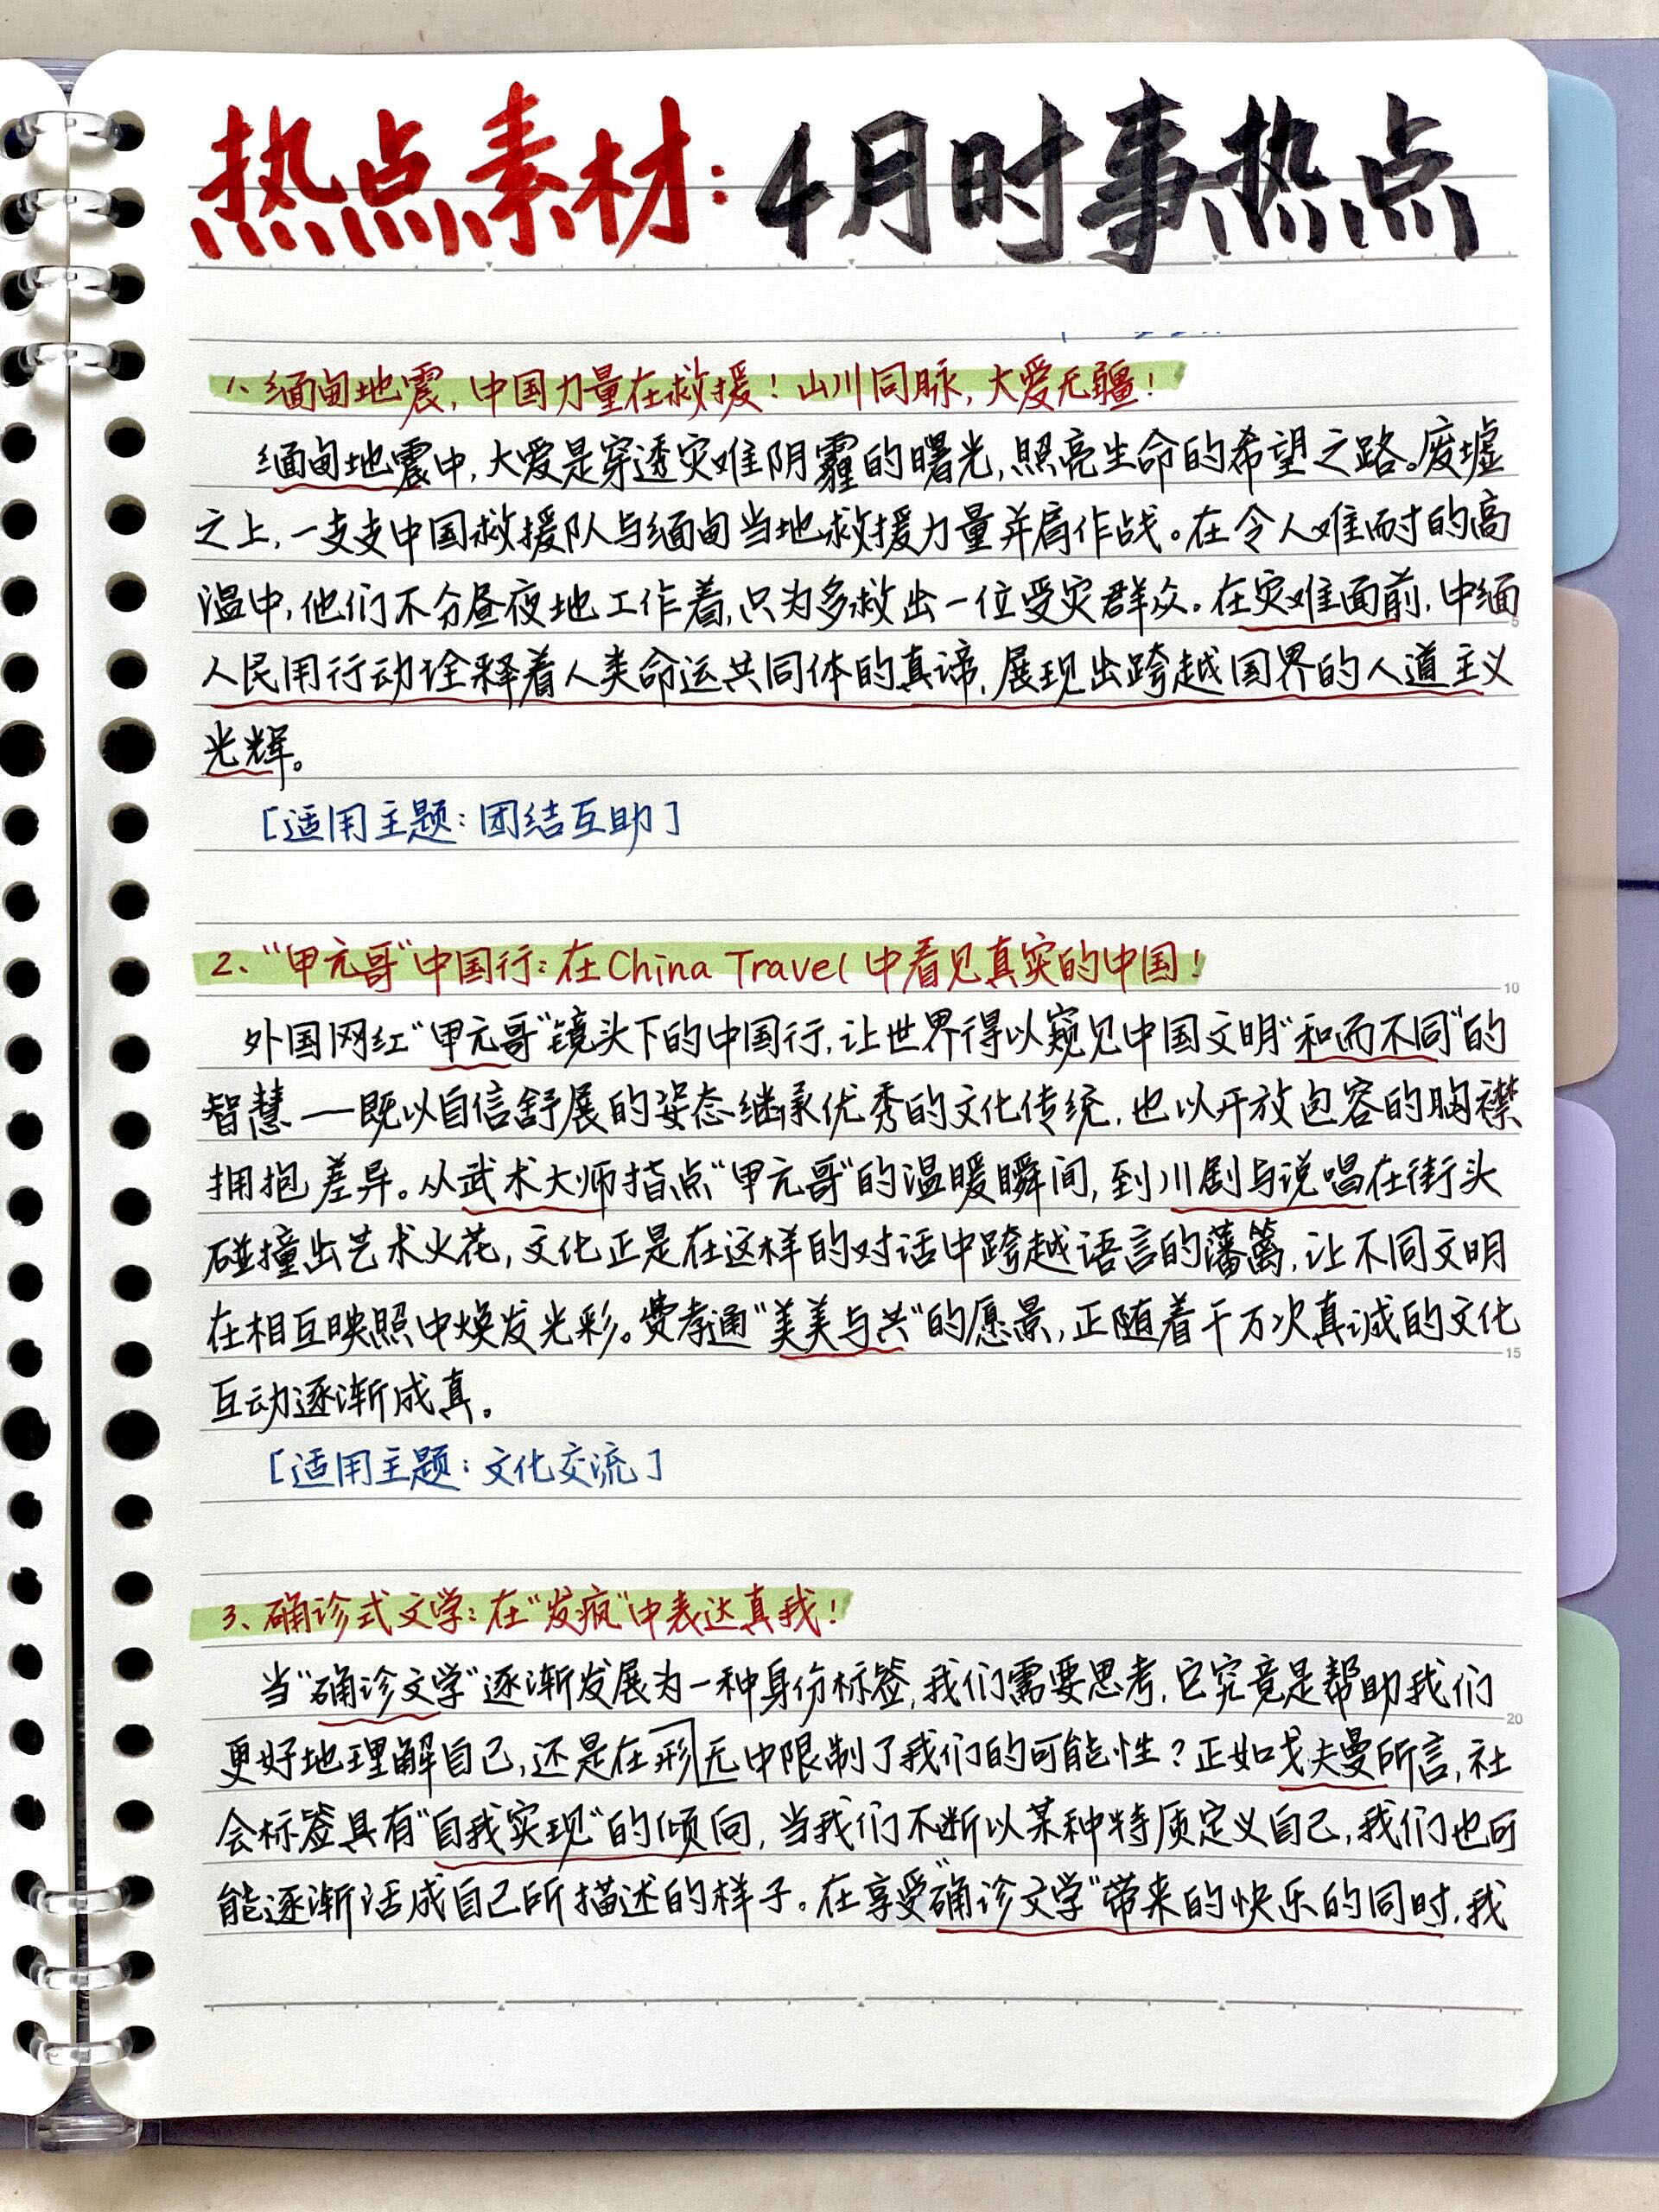 热点素材：4月时事热点
1、缅甸地震，中国力量在救援！山川同脉，大爱无疆！
缅甸地震中，大爱是穿透灾难阴霾的曙光，照亮生命的希望之路。废墟
之上，一支支中国救援队与缅甸当地救援力量并肩作战。在令人难耐的高
温中，他们不分昼夜地工作着，只为多救出一位受灾群众。在灾难面前，中缅
人民用行动诠释着人类命运共同体的真谛，展现出跨越国界的人道主义
光辉。
[适用主题：团结互助]
2、“甲亢哥”中国行：在China Travel 中看见真实的中国！
外国网红“甲亢哥”镜头下的中国行，让世界得以窥见中国文明“和而不同”的
智慧——既以自信舒展的姿态继承优秀的文化传统，也以开放包容的胸襟
拥抱差异。从武术大师指点“甲亢哥”的温暖瞬间，到川剧与说唱在街头
碰撞出艺术火花，文化正是在这样的对话中跨越语言的藩篱，让不同文明
在相互映照中焕发光彩。费孝通“美美与共”的愿景，正随着千万次真诚的文化
互动逐渐成真。
[适用主题：文化交流]
3、确诊式文学：在“发疯”中表达真我！
当“确诊文学”逐渐发展为一种身份标签，我们需要思考，它究竟是帮助我们
更好地理解自己，还是在形无中限制了我们的可能性？正如戈夫曼所言，社
会标签具有“自我实现”的倾向，当我们不断以某种特质定义自己，我们也可
能逐渐活成自己所描述的样子。在享受“确诊文学”带来的快乐的同时，我
10
15
20
5